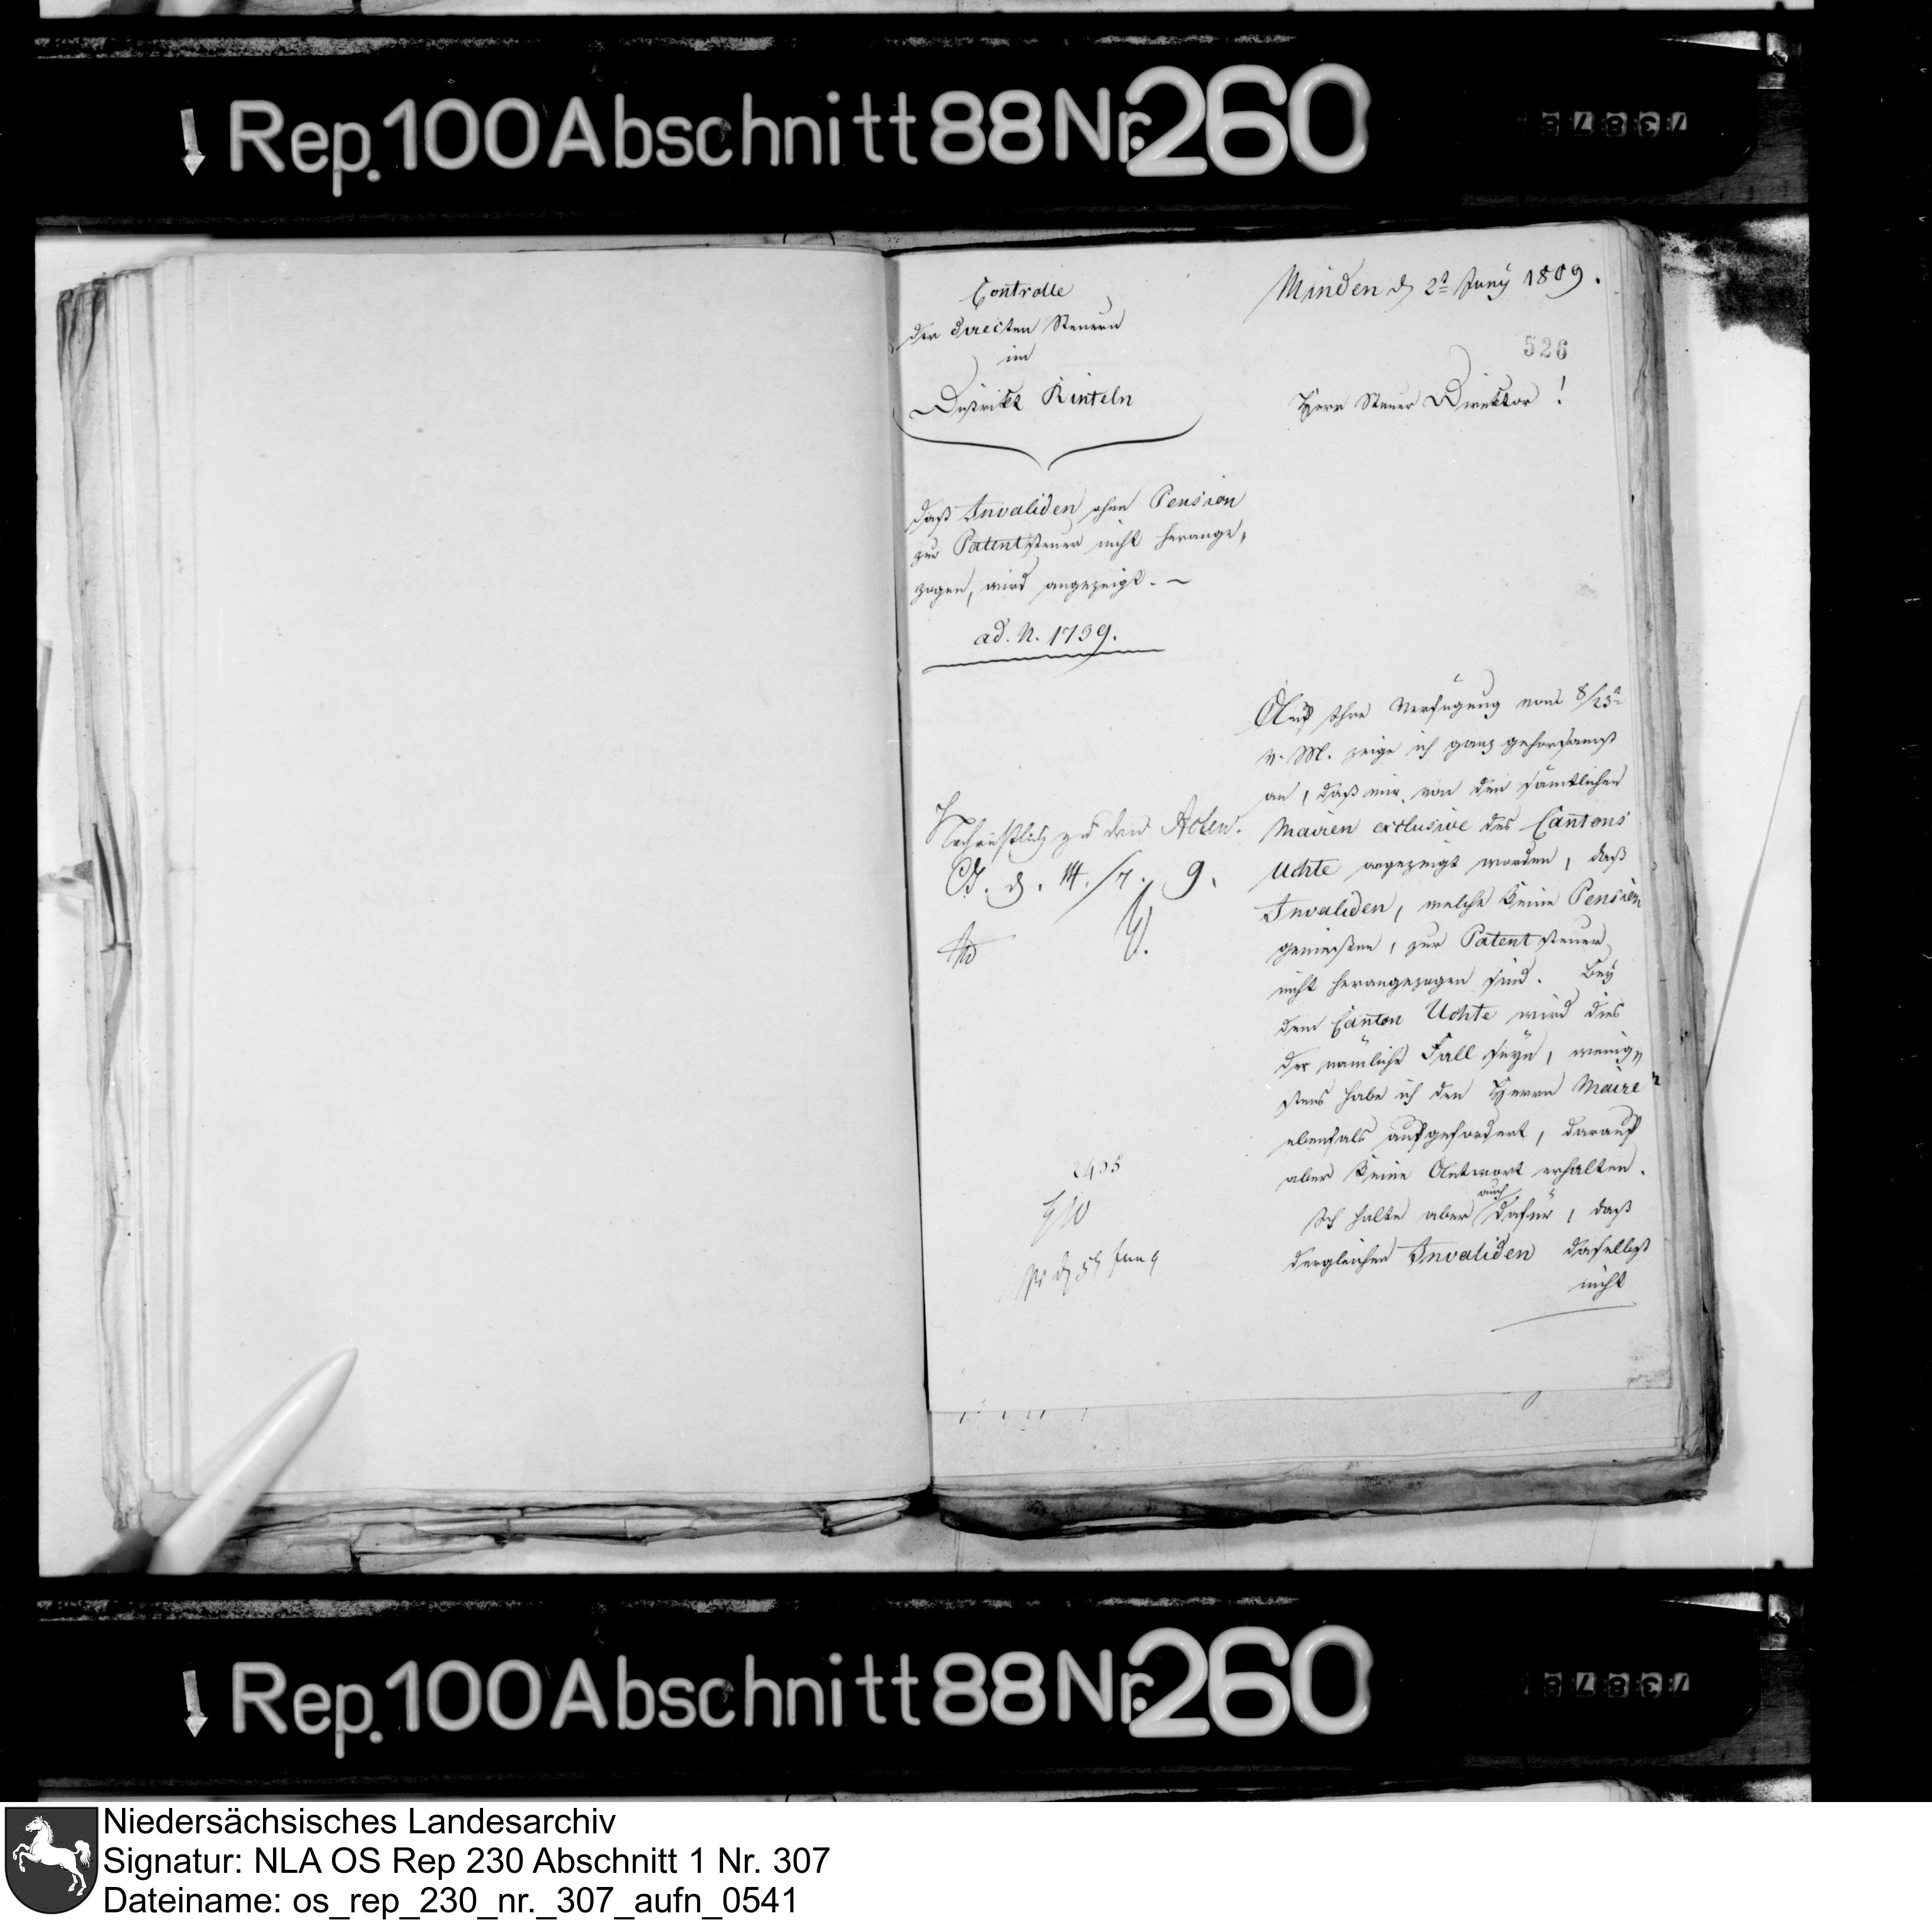 Rep. 100 Abschnitt 88 Nr. 260
Controlle
der directen Steuern
im
District Rinteln
Minden d 2t Juny 1809.
526
Herr Steuer Direktor!
daß Invaliden ohne Pension
zur Patentsteuer nicht herange,
zogen, wird angezeigt. -
ad. N. 1739.
Auf Ihre Verfügung vom 8/23t
v. M. zeige ich ganz gehorsamst
an, daß mir von den sämtlichen
Mairen exclusive des Cantons
Uchte angezeigt worden, daß
Invaliden, welche keine Pension
genießen, zur Patentsteuer
nicht herangezogen sind. Bey
dem Canton Uchte wird dies
der nämliche Fall seyn, wenig„
stens habe ich den Herrn Maire
ebenfals aufgefordert, darauf
aber keine Antwort erhalten.
Ich halte aber auch dafür, daß
dergleichen Invaliden daselbst
nicht
zu den Acten.
O. d. 14./7. 9.
2495
pr d 5t Jun 9
Rep. 100 Abschnitt 88 Nr. 260
Niedersächsisches Landesarchiv
Signatur: NLA OS Rep 230 Abschnitt 1 Nr. 307
Dateiname: os_rep_230_nr._307_aufn_0541